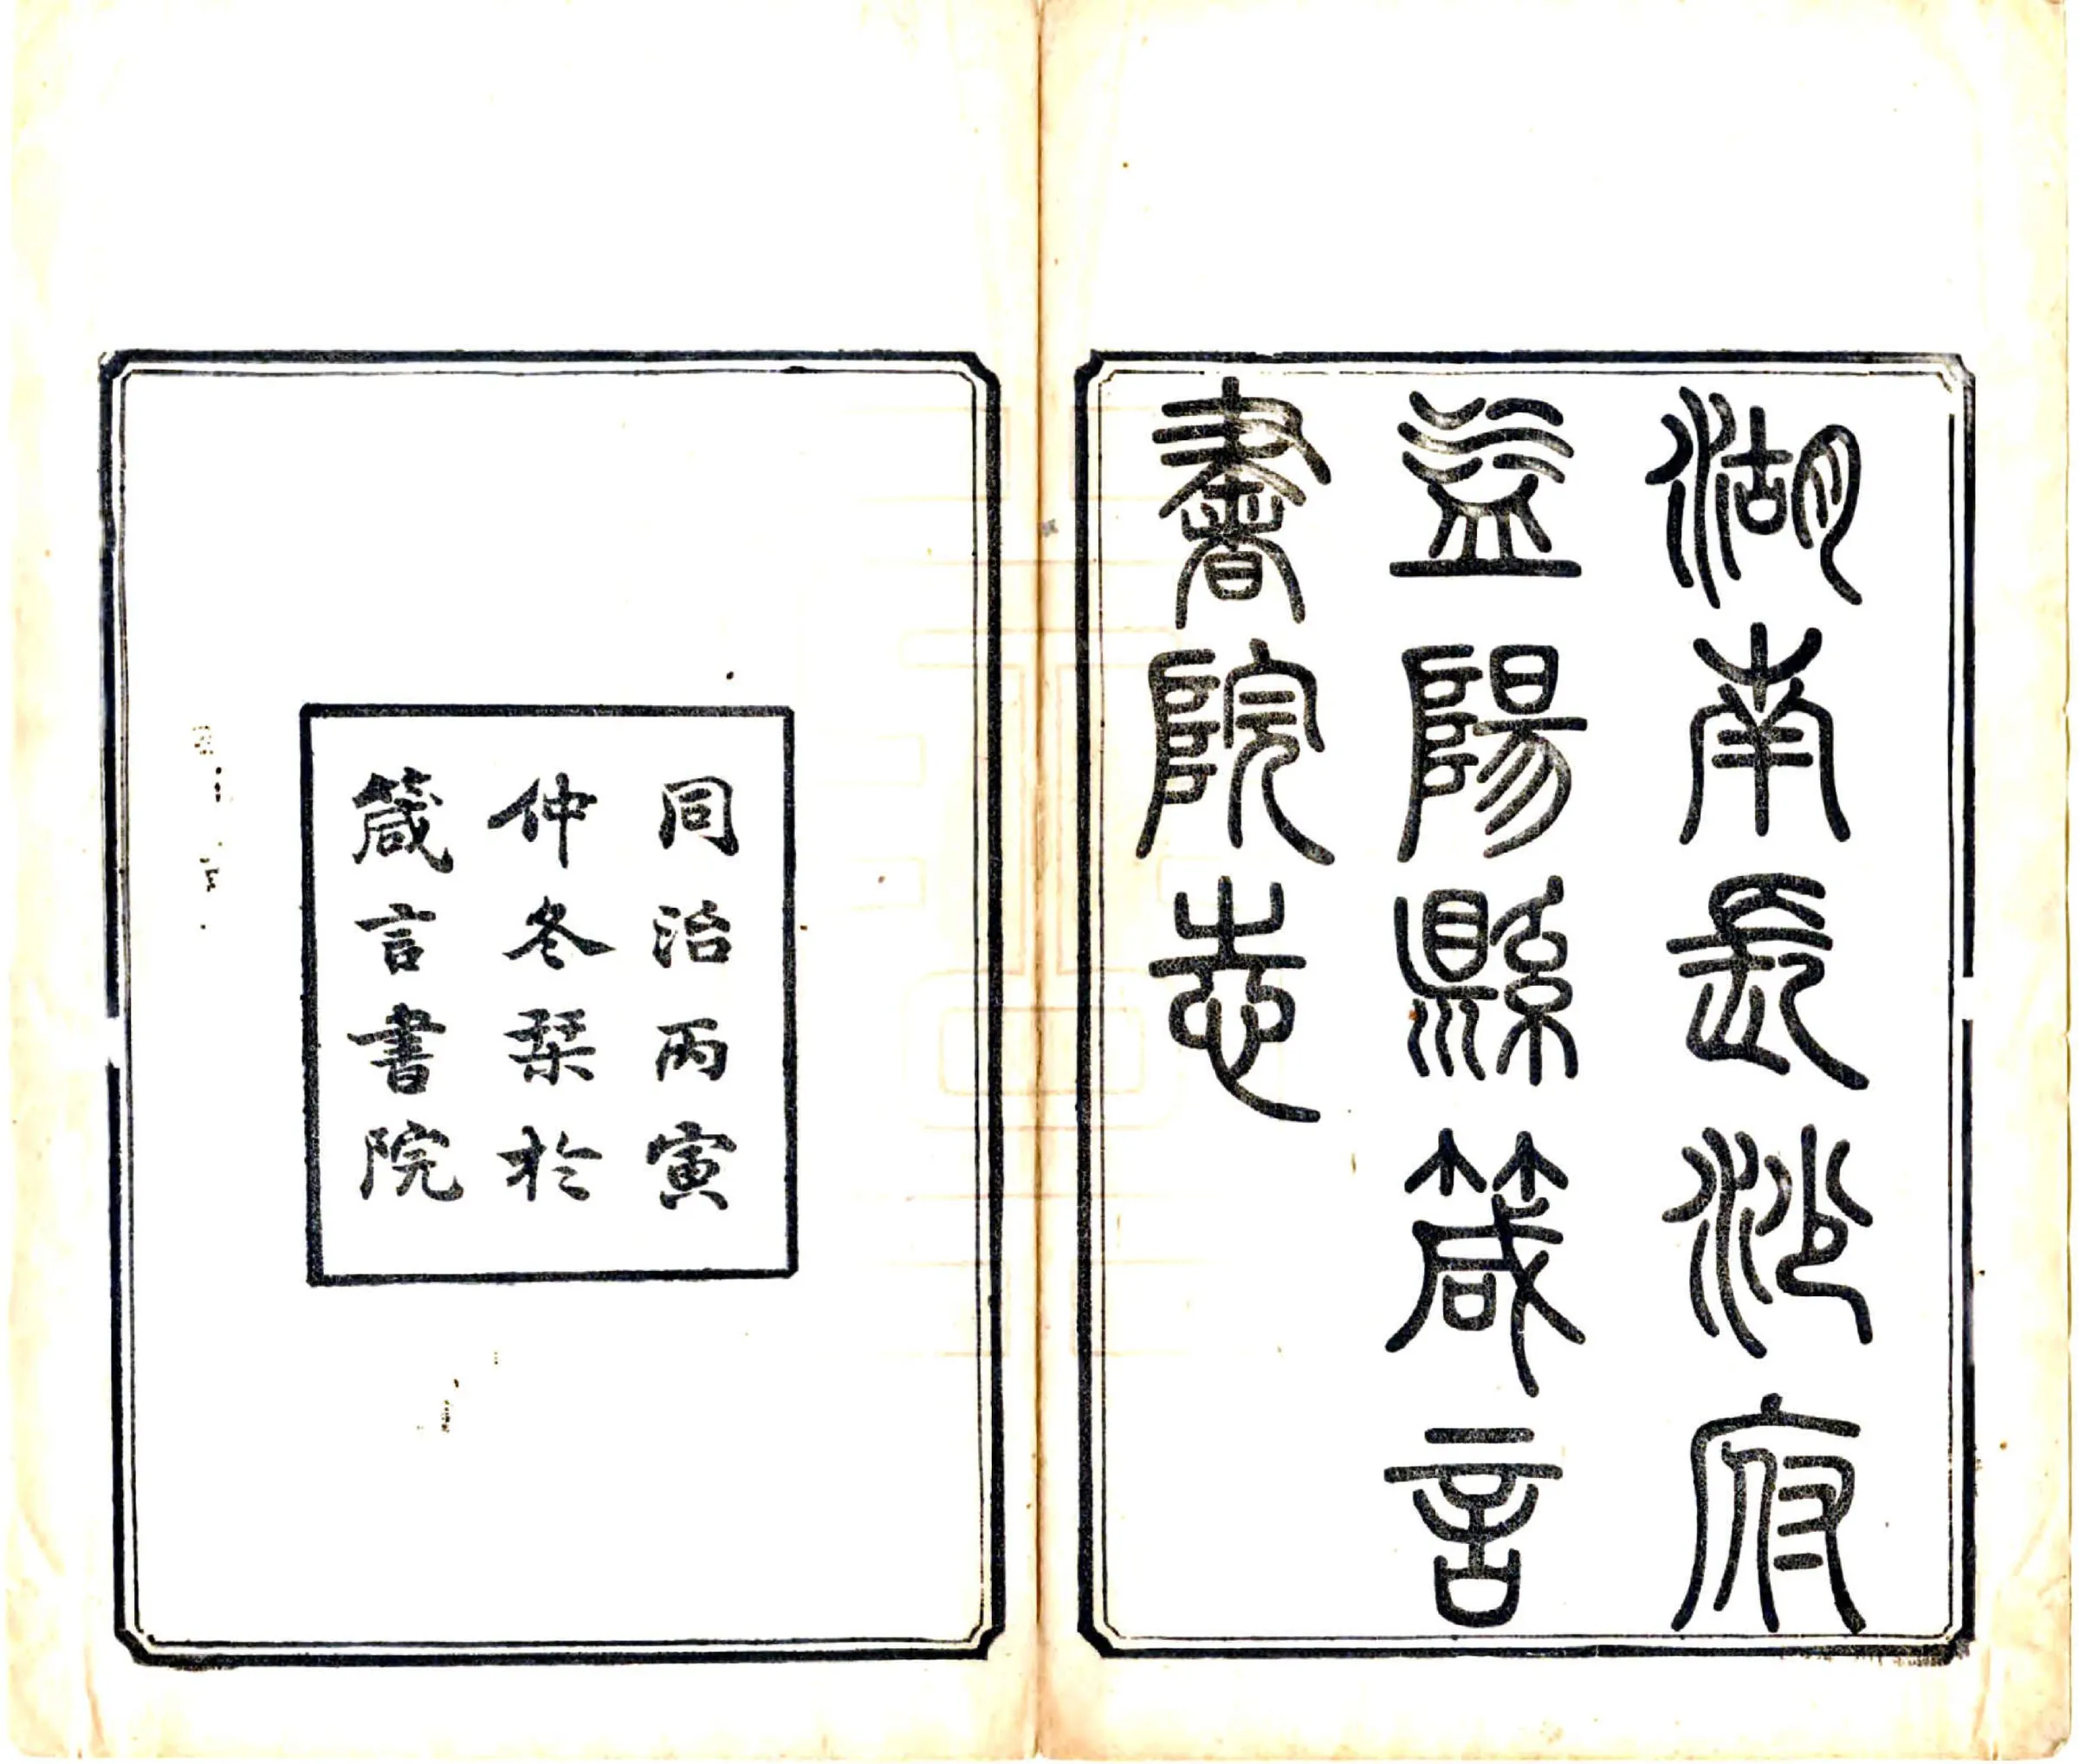 湖南長沙府
益陽縣箴言
書院志
同治丙寅
仲冬栞於
箴言書院